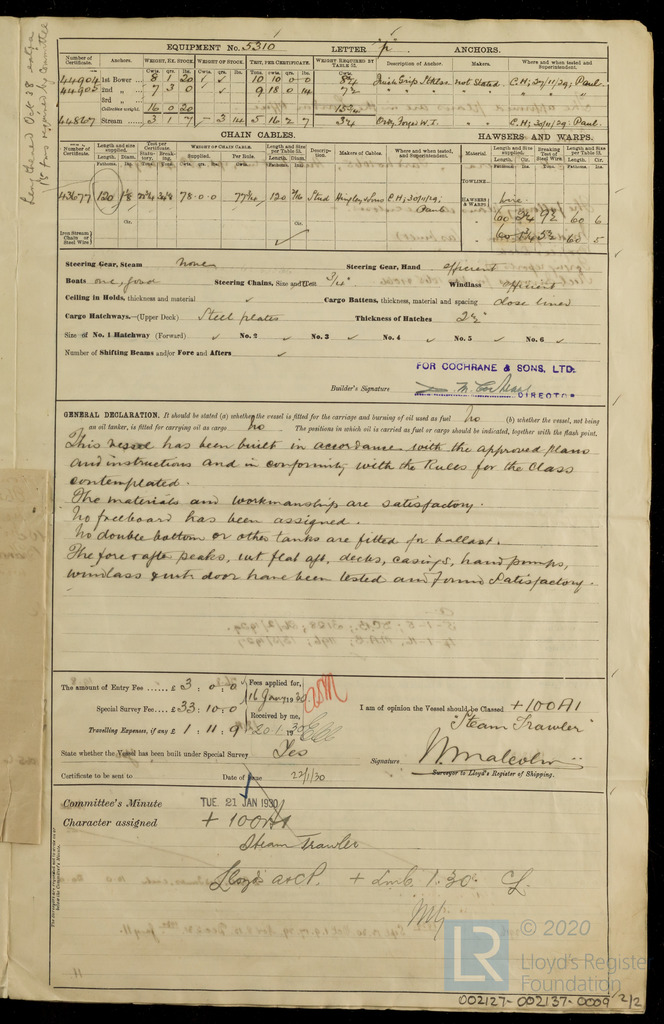 Lengthened Oct 38 extra
15 tons required by Committee
EQUIPMENT No. 5310 LETTER "p" ANCHORS.
Number of Certificate. Anchors. WEIGHT, EX. STOCK. WEIGHT OF STOCK. TEST, PER CERTIFICATE. WEIGHT REQUIRED BY TABLE 31. Description of Anchor. Makers. Where and when tested and Superintendent.
44904 1st Bower 8 1 20 10 10 0 0 not Stated. C.H; 27/11/29; Paul.
44905 2nd „ 7 3 0 9 18 0 14 7½ " " " "
3rd „
Collective weight. 16 0 20 15¾
44867 Stream 3 1 7 3 14 5 16 2 7 3¼ Ord. Forged W.I. C.H; 30/11/29; Paul.
CHAIN CABLES. HAWSERS AND WARPS.
Number of Certificate. Length and size supplied. Test per Certificate. WEIGHT OF CHAIN CABLE. Length and size per Table 31. Description. Makers of Cables. Where and when tested, and Superintendent. Material Length and size supplied. Breaking Test of Steel Wire. Length and size per Table 31.
Length. Diam. Statutory. Breaking. Supplied. Per Rule. Length. Diam. Length. Cir. Length. Cir.
TOWLINE
43677 120 78-0-0 77¼ 120 Stud Hingley & Sons C.H; 30/11/29; Paul HAWSERS & WARPS Wire
60 2¾ 9½ 60 6
60 5½ 60 5
Iron Stream Chain or Steel Wire
Steering Gear, Steam None Steering Gear, Hand efficient
Boats one, good Steering Chains, Size and Test 3/4" Windlass efficient
Ceiling in Holds, thickness and material ✓ Cargo Battens, thickness, material and spacing close lined
Cargo Hatchways.—(Upper Deck) Steel plates Thickness of Hatches 2½"
Size of No. 1 Hatchway (Forward) ✓ No. 2 ✓ No. 3 ✓ No. 4 ✓ No. 5 ✓ No. 6 ✓
Number of Shifting Beams and/or Fore and Afters ✓
FOR COCHRANE & SONS, LTD.
Builder's Signature
DIRECTOR
GENERAL DECLARATION. It should be stated (a) whether the vessel is fitted for the carriage and burning of oil used as fuel No (b) whether the vessel, not being
an oil tanker, is fitted for carrying oil as cargo No The positions in which oil is carried as fuel or cargo should be indicated, together with the flash point.
This vessel has been built in accordance with the approved plans
and instructions and in conformity with the Rules for the Class
contemplated.
The materials and workmanship are satisfactory.
No freeboard has been assigned.
No double bottom or other tanks are fitted for ballast.
The fore & after peaks, wt flat aft, decks, casings, hand pumps,
windlass & wt door have been tested and found satisfactory.
The amount of Entry Fee ...... £ 3 : 0 : 0 Fees applied for,
16 Jany 1930
Special Survey Fee.... £ 33 : 10 : 0 Received by me,
Travelling Expenses, if any £ 1 : 11 : 9 20.1.1930
I am of opinion the Vessel should be Classed +100A1
"Steam Trawler"
State whether the Vessel has been built under Special Survey Yes Signature W. Malcolm
Surveyor to Lloyd's Register of Shipping.
Certificate to be sent to Date of issue 22/1/30
Committee's Minute TUE. 21 JAN 1930
Character assigned +100A1
Steam Trawler
Lloyd's A&CP. + LMC 1.30.
The Surveyors are requested not to write on or below the Committee's Minute.
LR © 2020
Lloyd's Register
Foundation
002127-002137-0009 2/2